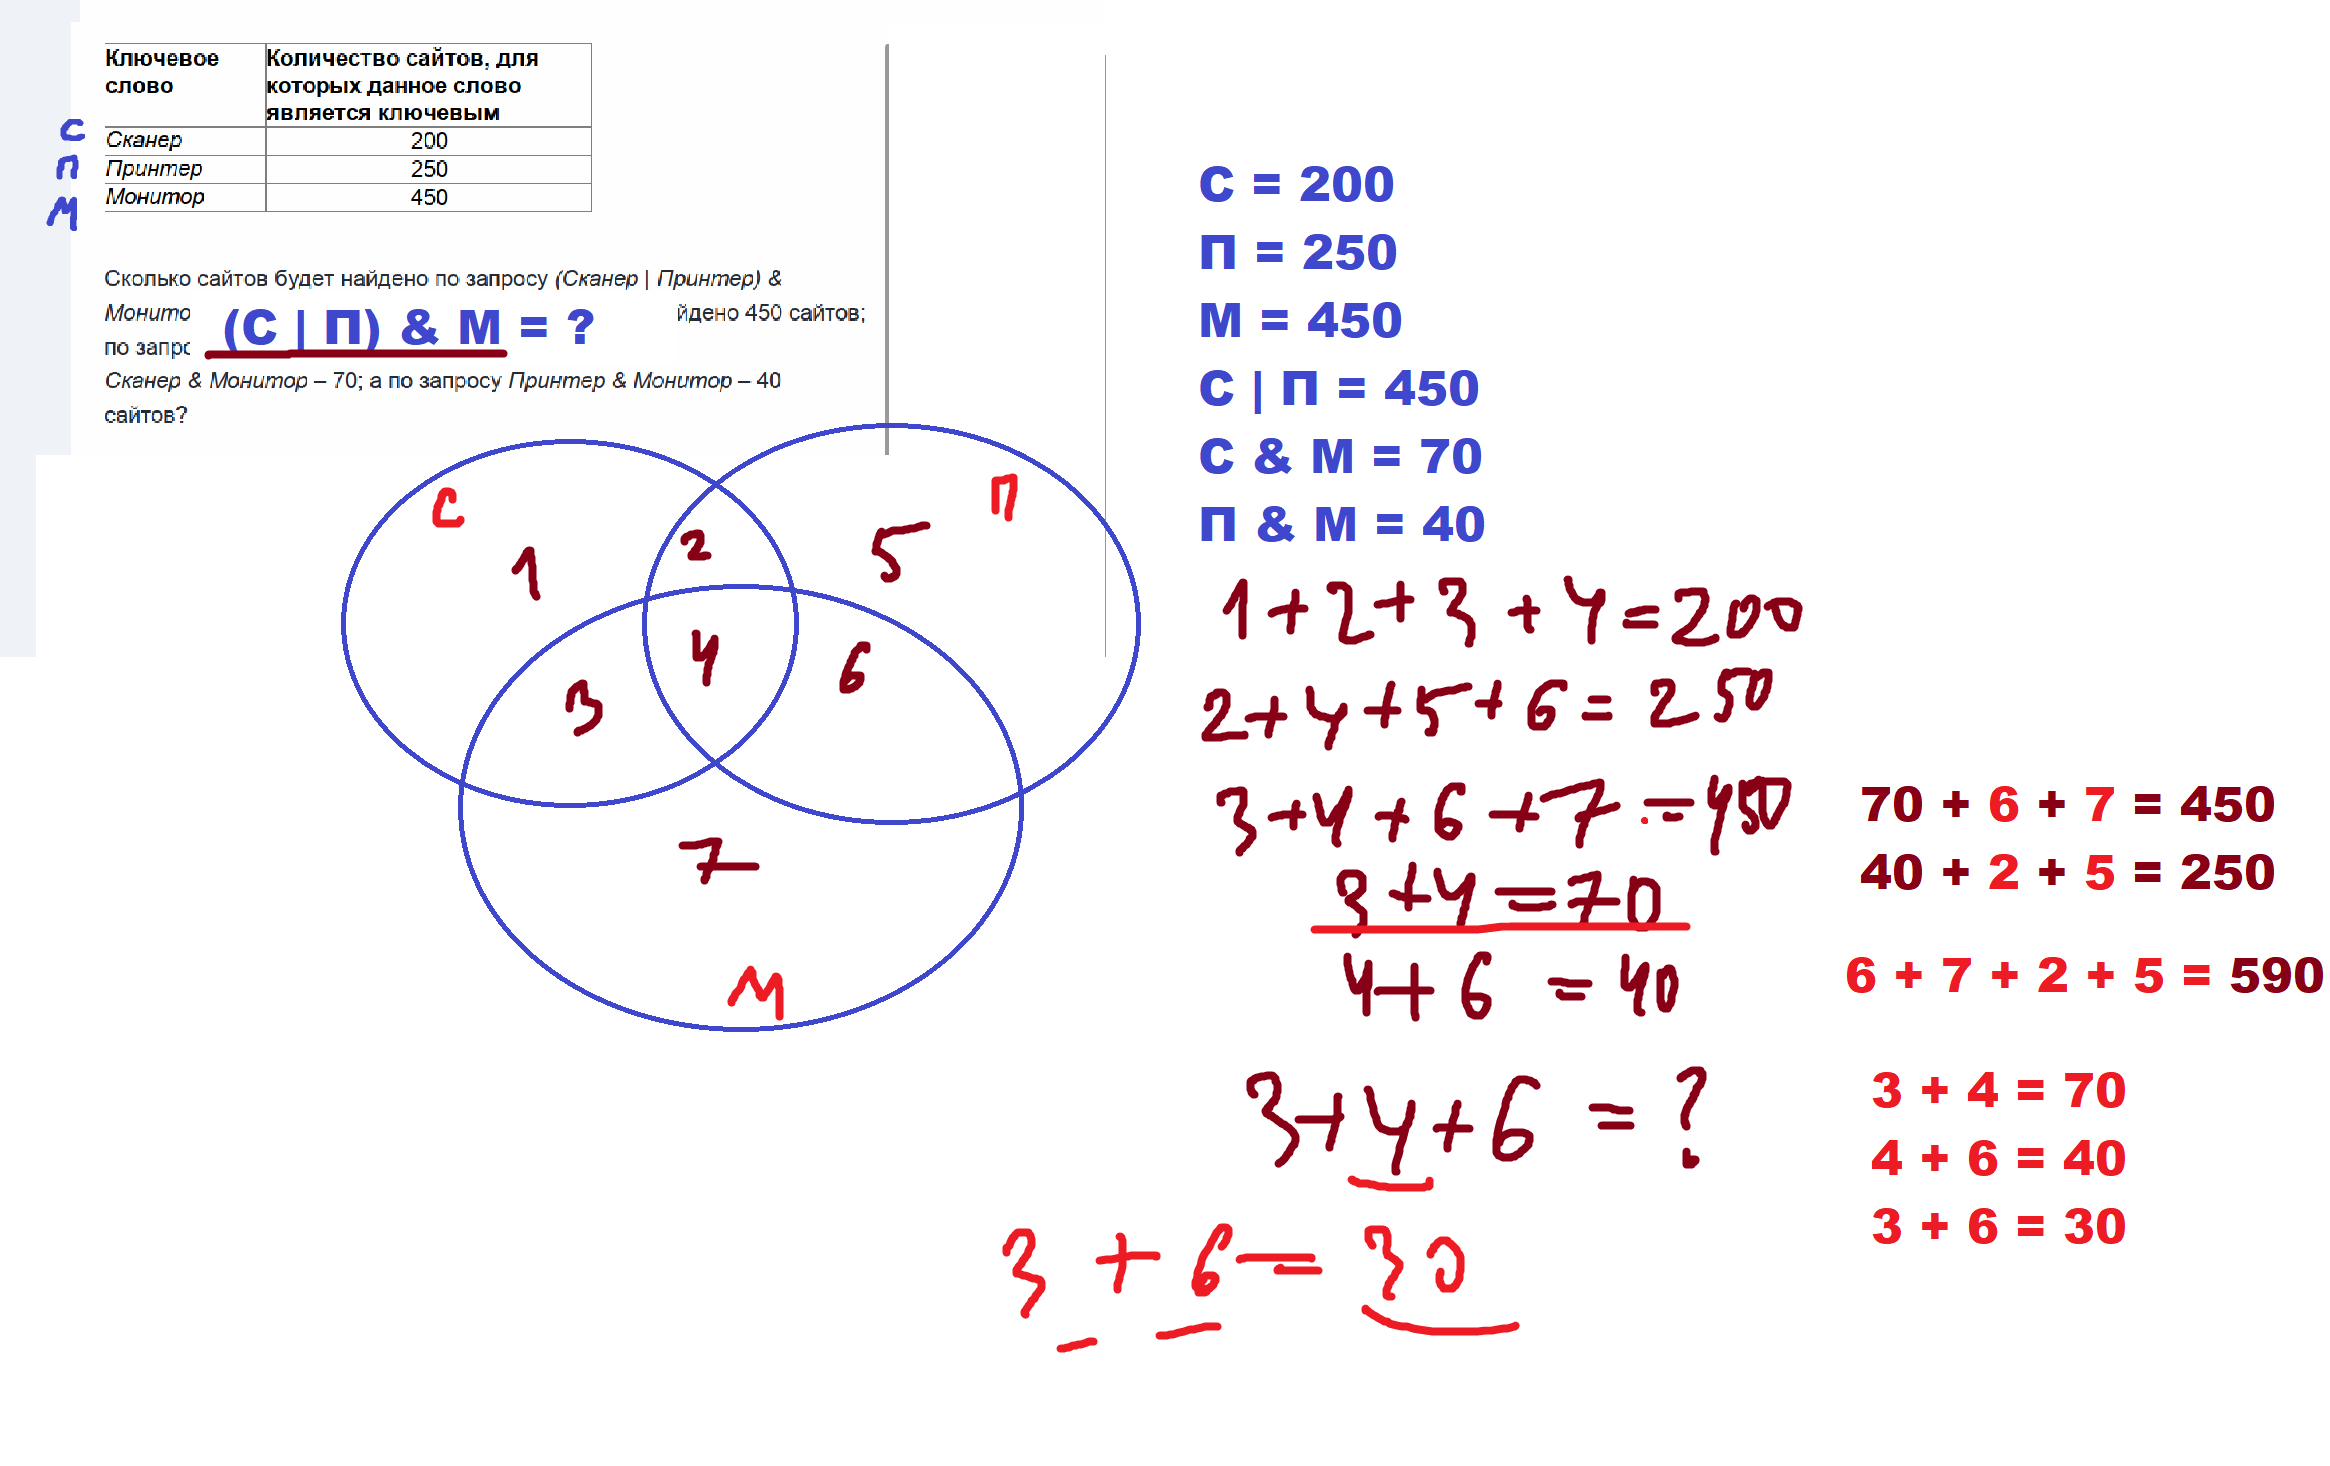 Ключевое слово
Количество сайтов, для которых данное слово является ключевым
С
Сканер
200
П
Принтер
250
М
Монитор
450
Сколько сайтов будет найдено по запросу (Сканер | Принтер) &
йдено 450 сайтов;
(С | П) & М = ?
по
Сканер & Монитор – 70; а по запросу Принтер & Монитор – 40
сайтов?
С = 200
П = 250
М = 450
С | П = 450
С & М = 70
П & М = 40
С
П
1
2
5
4
6
3
7
М
1+2+3+4=200
2+4+5+6=250
3+4+6+7=450
3+4=70
4+6=40
3+4+6=?
3+6=30
70 + 6 + 7 = 450
40 + 2 + 5 = 250
6 + 7 + 2 + 5 = 590
3 + 4 = 70
4 + 6 = 40
3 + 6 = 30